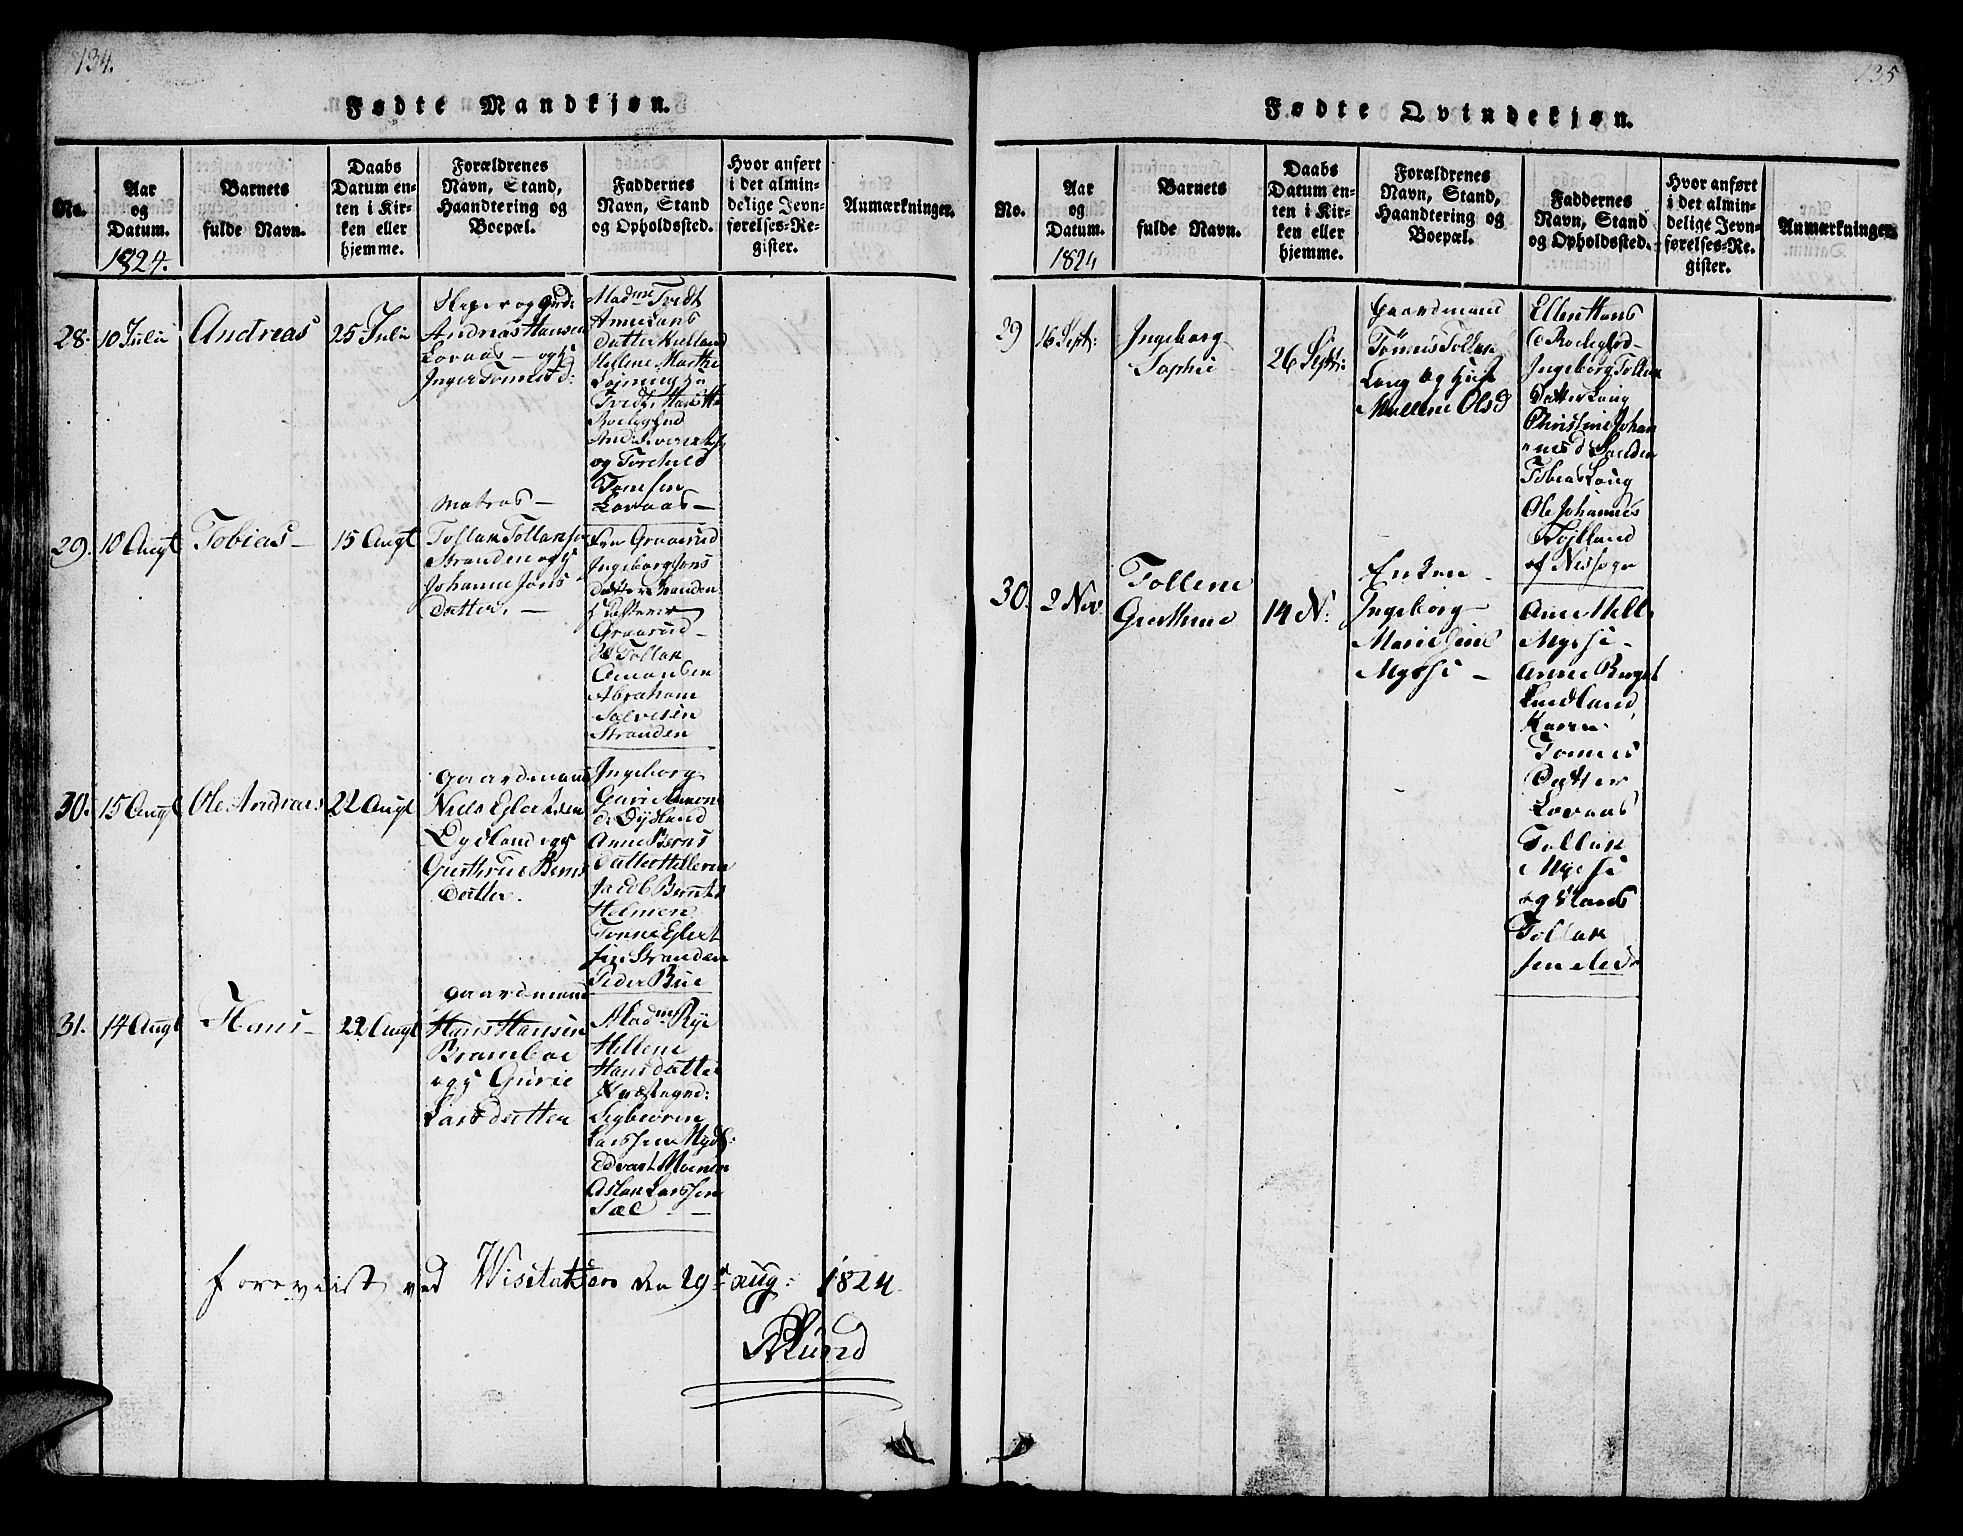 134.
Fødte Mandkjøn.
No.
Aar
og
Datum.
1824.
Barnets
fulde Navn.
Daabs
Datum en-
ten i Kir-
ken eller
hjemme.
Forældrenes
Navn, Stand,
Haandtering og
Boepæl.
Faddernes
Navn, Stand
og Opholdssted.
Hvor anført
i det almin-
delige Jevn-
førelses-Re-
gister.
Anmærkninger.
28.
10 Julii
Andreas
25 Julii
Andreas Hansen
Lovaas - og
Inger Tønnesd:
Madme Tvedt
Anne Lars
Datter
Hellene Marthe
Tvedt, Hans
og Torchild
Tønnesen
Lovaas -
29.
10 Augt
Tobias -
15 Augt
Matros -
Tollak Tollaksen
Stranden og
Johanne Jons
Datter. -
Fru Graarud
Ingeborg Jons
Datter Stranden
Graarud -
Tollak
Amandsen
Abraham
Salvesen
Stranden
30.
15 Augt
Ole Andreas
22 Augt
Gaardmand
Niels Eglertsen
Dydland og
Gurthrue Berns
Datter.
Ingeborg
Gurie
Dydland
Anne Berns
Datter
Jacob Berntse
Tønne Eglert
sen Stranden
Peder Bue
31.
14 Augt
Hans -
22 Augt
Gaardmand
Hans Hansen
Bramboe
og Gurie
Lars datter
Madme Rye
Hellene
Hans datter
Sigbeøren
Larssen
Edvart
Aslak Larssen
Sæl -
foreviist ved Visitatsen den 29d aug: 1824.
Lund
135
Fødte Qvindekjøn.
No.
Aar
og
Datum.
1824
Barnets
fulde Navn.
Daabs
Datum en-
ten i Kir-
ken eller
hjemme.
Forældrenes
Navn, Stand,
Haandtering og
Boepæl.
Faddernes
Navn, Stand
og Opholdssted.
Hvor anført
i det almin-
delige Jevn-
førelses-Re-
gister.
Anmærkninger.
29
16 Sept:
Ingeborg
Sophie
26 Sept:
Gaardmand
Tønnes Tollak
Loug og
Mallene Olsd
Ellen Hans
Ingeborg Tollak
Datter Loug
Christine Johan
nesd Sanden
Tobias Loug
Ole Johannes
af Nessogn
30.
2 Nov.
Tollene
Gurthrue
14 N:
Enken -
Ingeborg -
Marie
Myssi -
Ane
Myssi -
Anne Birget
Lindland
Karen
Tønnes
Datter
Lovaas
Tollak
Myssi
og Hans
Tollak
sen